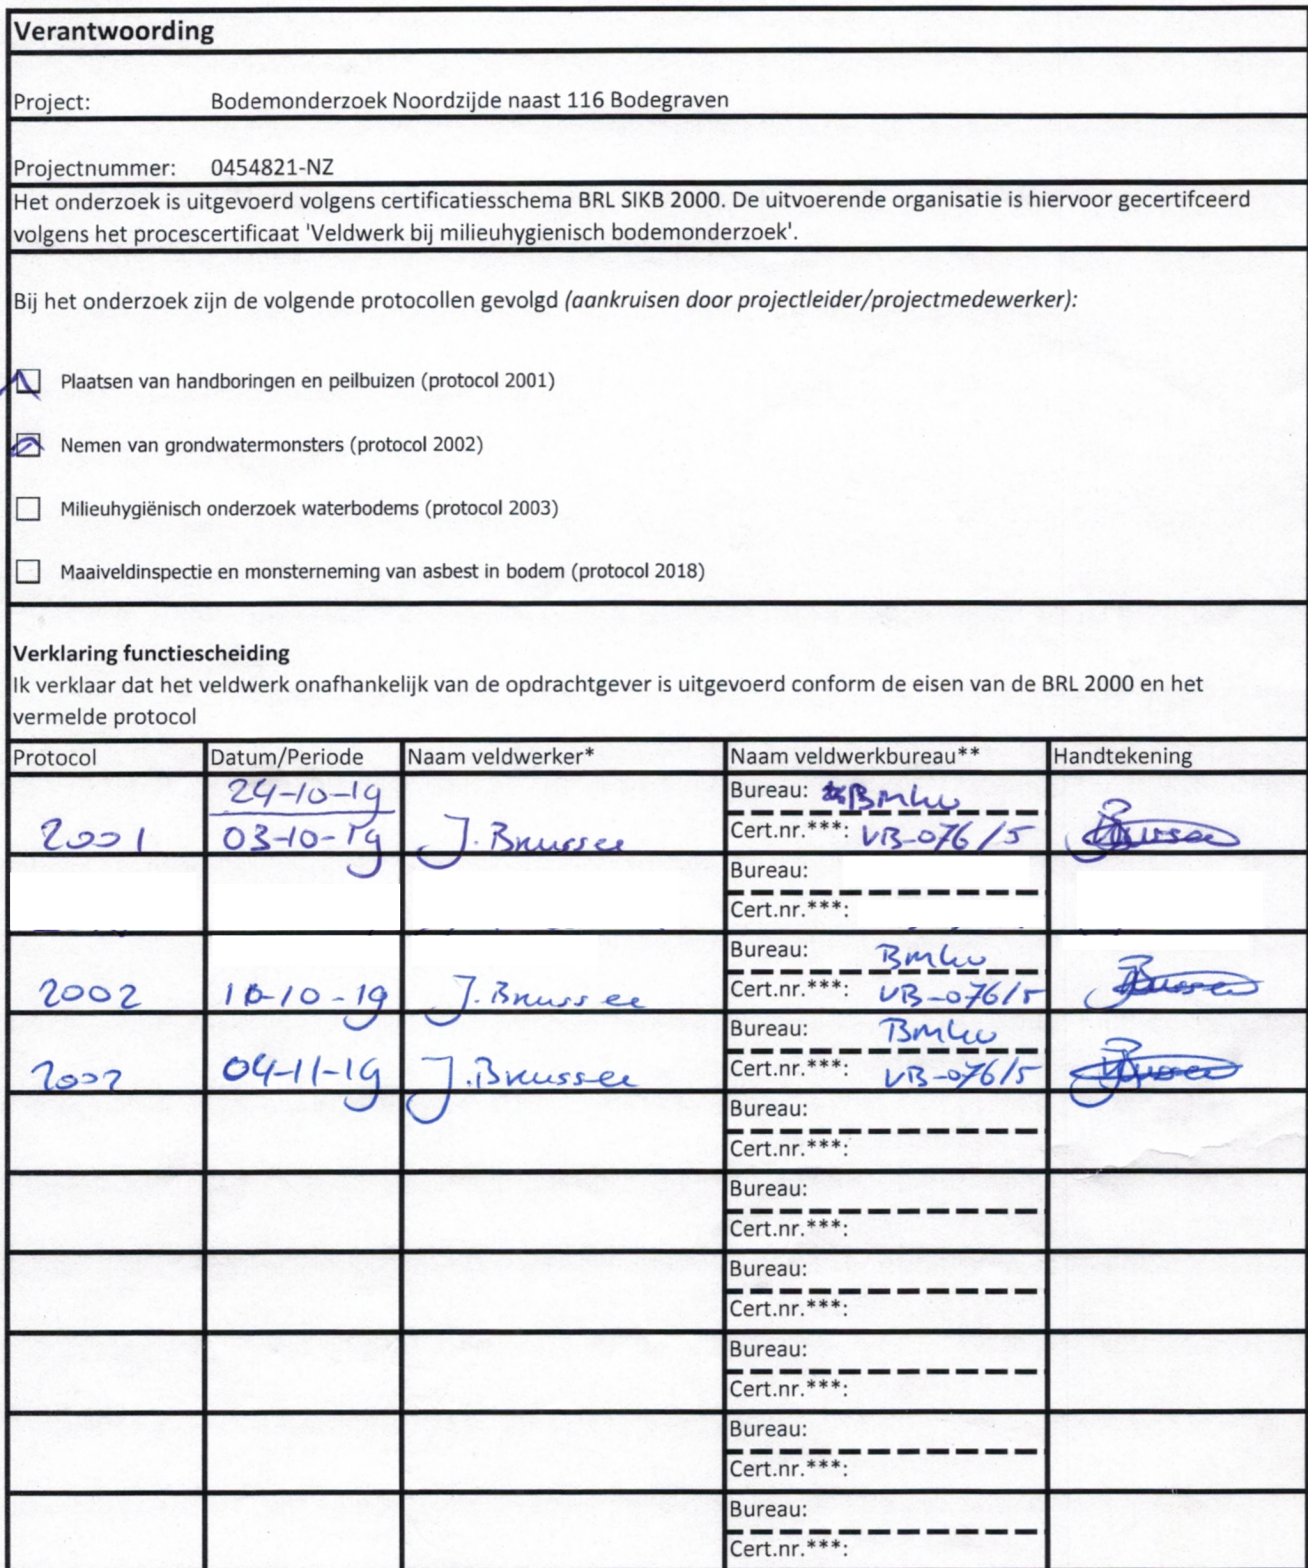 Verantwoording
Project: Bodemonderzoek Noordzijde naast 116 Bodegraven
Projectnummer: 0454821-NZ
Het onderzoek is uitgevoerd volgens certificatiesschema BRL SIKB 2000. De uitvoerende organisatie is hiervoor gecertifceerd
volgens het procescertificaat 'Veldwerk bij milieuhygienisch bodemonderzoek'.
Bij het onderzoek zijn de volgende protocollen gevolgd (aankruisen door projectleider/projectmedewerker):
Plaatsen van handboringen en peilbuizen (protocol 2001)
Nemen van grondwatermonsters (protocol 2002)
Milieuhygiënisch onderzoek waterbodems (protocol 2003)
Maaiveldinspectie en monsterneming van asbest in bodem (protocol 2018)
Verklaring functiescheiding
Ik verklaar dat het veldwerk onafhankelijk van de opdrachtgever is uitgevoerd conform de eisen van de BRL 2000 en het
vermelde protocol
Protocol Datum/Periode Naam veldwerker* Naam veldwerkbureau** Handtekening
24-10-19 Bureau:
2001 03-10-19 J. Brussee Cert.nr.***: VB-076/5
Bureau:
Cert.nr.***:
Bureau:
2002 10-10-19 J. Brussee Cert.nr.***: VB-076/5
Bureau:
2002 04-11-19 J. Brussee Cert.nr.***: VB-076/5
Bureau:
Cert.nr.***:
Bureau:
Cert.nr.***:
Bureau:
Cert.nr.***:
Bureau:
Cert.nr.***:
Bureau:
Cert.nr.***:
Bureau:
Cert.nr.***: